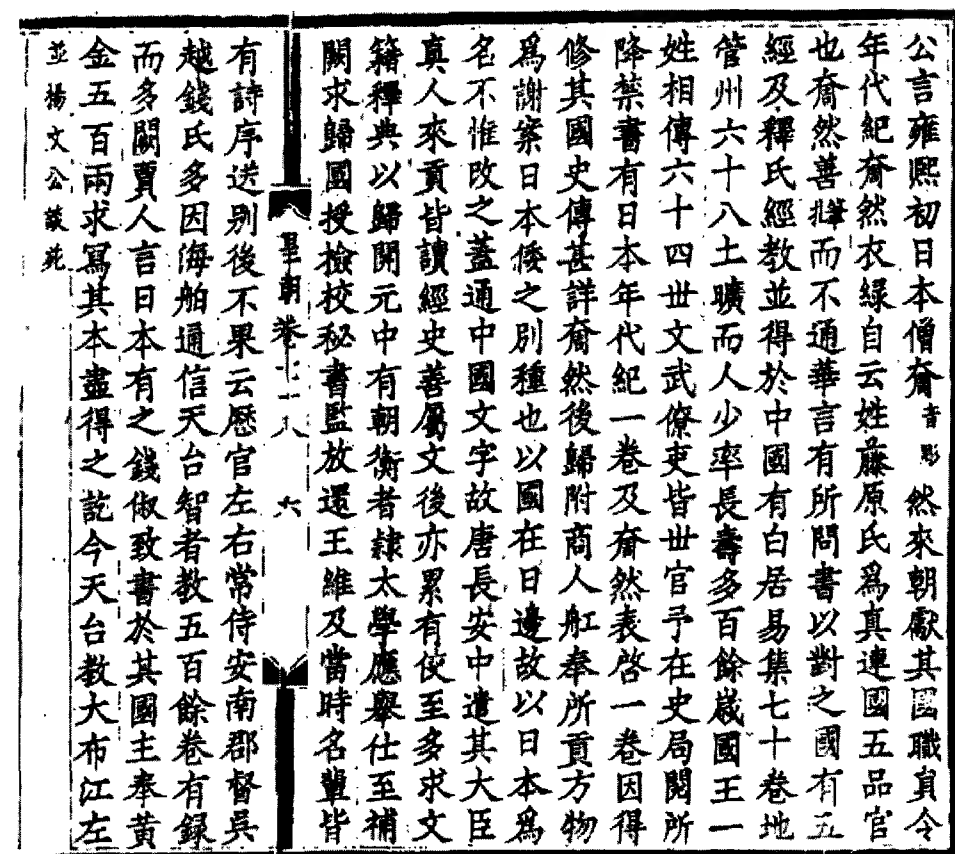 公言雍熙初日本僧奝音彫然來朝獻其國職員令
年代紀奝然衣緑自云姓藤原氏爲真連國五品官
也奝然善筆札而不通華言有所問書以對之國有五
經及釋氏經教並得於中國有白居易集七十巻地
管州六十八土曠而人少率長壽多百餘歲國王一
姓相傳六十四世文武僚吏皆世官予在史局閱所
降禁書有日本年代紀一巻及奝然表啓一巻因得
修其國史傳甚詳奝然後歸附商人舡奉所貢方物
爲謝案日本倭之別種也以國在日邊故以日本爲
名不惟改之蓋通中國文字故唐長安中遣其大臣
真人來貢皆讀經史善屬文後亦累有使至多求文
籍釋典以歸開元中有朝衡者隷太學應舉仕至補
闕求歸國授檢校秘書監放還王維及當時名輩皆
皇朝 巻七十八 六
有詩序送别後不果云歴官左右常侍安南郡督吳
越錢氏多因海舶通信天台智者教五百餘巻有録
而多闕賈人言日本有之錢俶致書於其國主奉黄
金五百兩求寫其本盡得之訖今天台教大布江左
並楊文公談苑